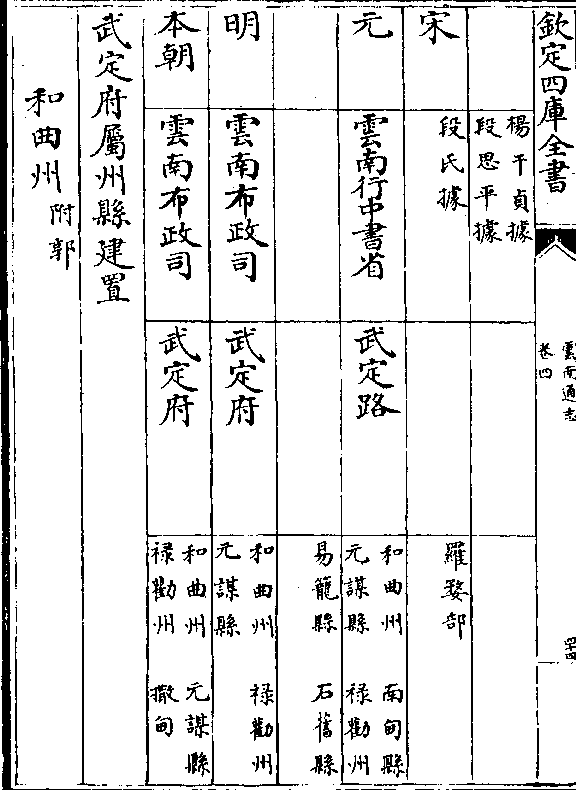 欽定四庫全書
雲南通志
卷四
四十四
楊干貞據
段思平據
宋
段氏據
羅婺部
元
雲南行中書省
武定路
和曲州 南甸縣
元謀縣 祿勸州
易籠縣 石舊縣
明
雲南布政司
武定府
和曲州 祿勸州
元謀縣
本朝
雲南布政司
武定府
和曲州 元謀縣
祿勸州 撒甸
武定府屬州縣建置
和曲州附郭